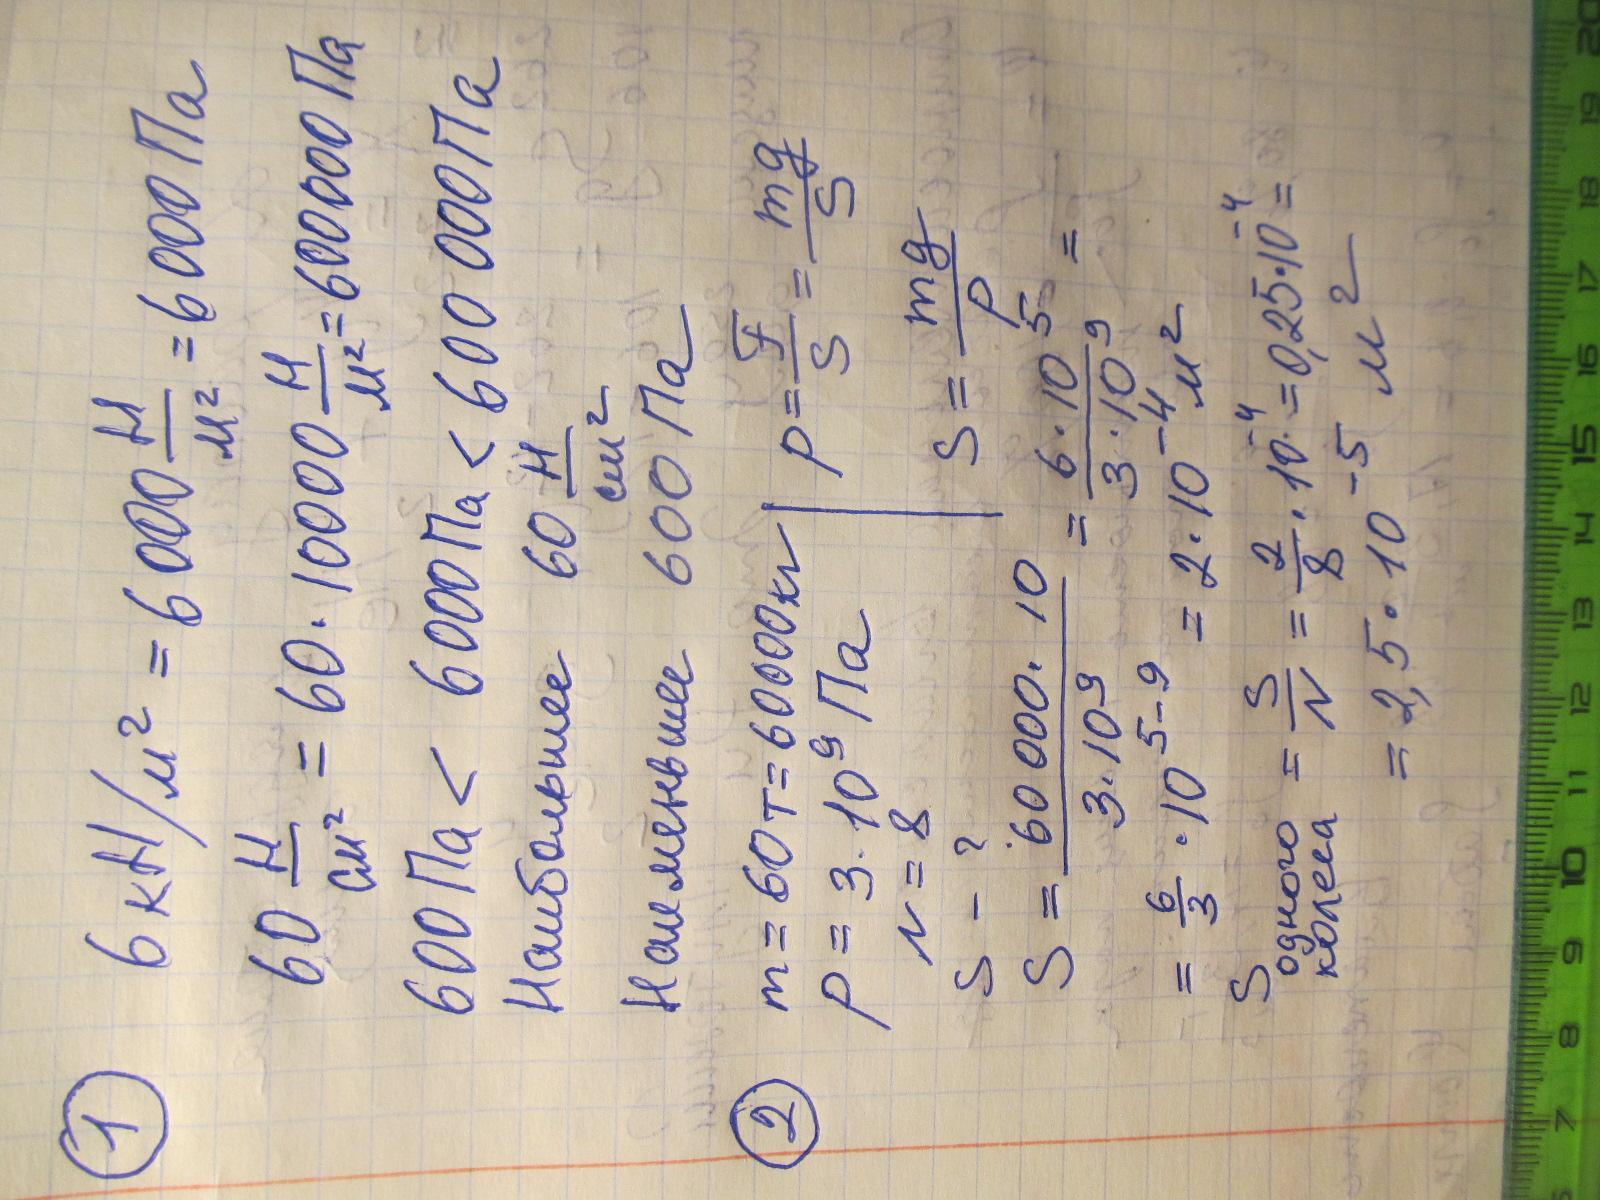 1
6 кН/м² = 6000 Н/м² = 6000 Па
60 Н/см² = 60·10000 Н/м² = 600000 Па
600 Па < 6000 Па < 600 000 Па
Наибольшее 60 Н/см²
Наименьшее 600 Па
2
m = 60 т = 60000 кг
p = F/S = mg/S
p = 3·10⁹ Па
N = 8
S = mg/p
S - ?
S = 60 000·10 / 3·10⁹ = 6·10⁵ / 3·10⁹ =
= 6/3 · 10⁵⁻⁹ = 2·10⁻⁴ м²
S одного колеса = S/N = 2/8 · 10⁻⁴ = 0,25·10⁻⁴ =
= 2,5·10⁻⁵ м²
7 8 9 10 11 12 13 14 15 16 17 18 19 20